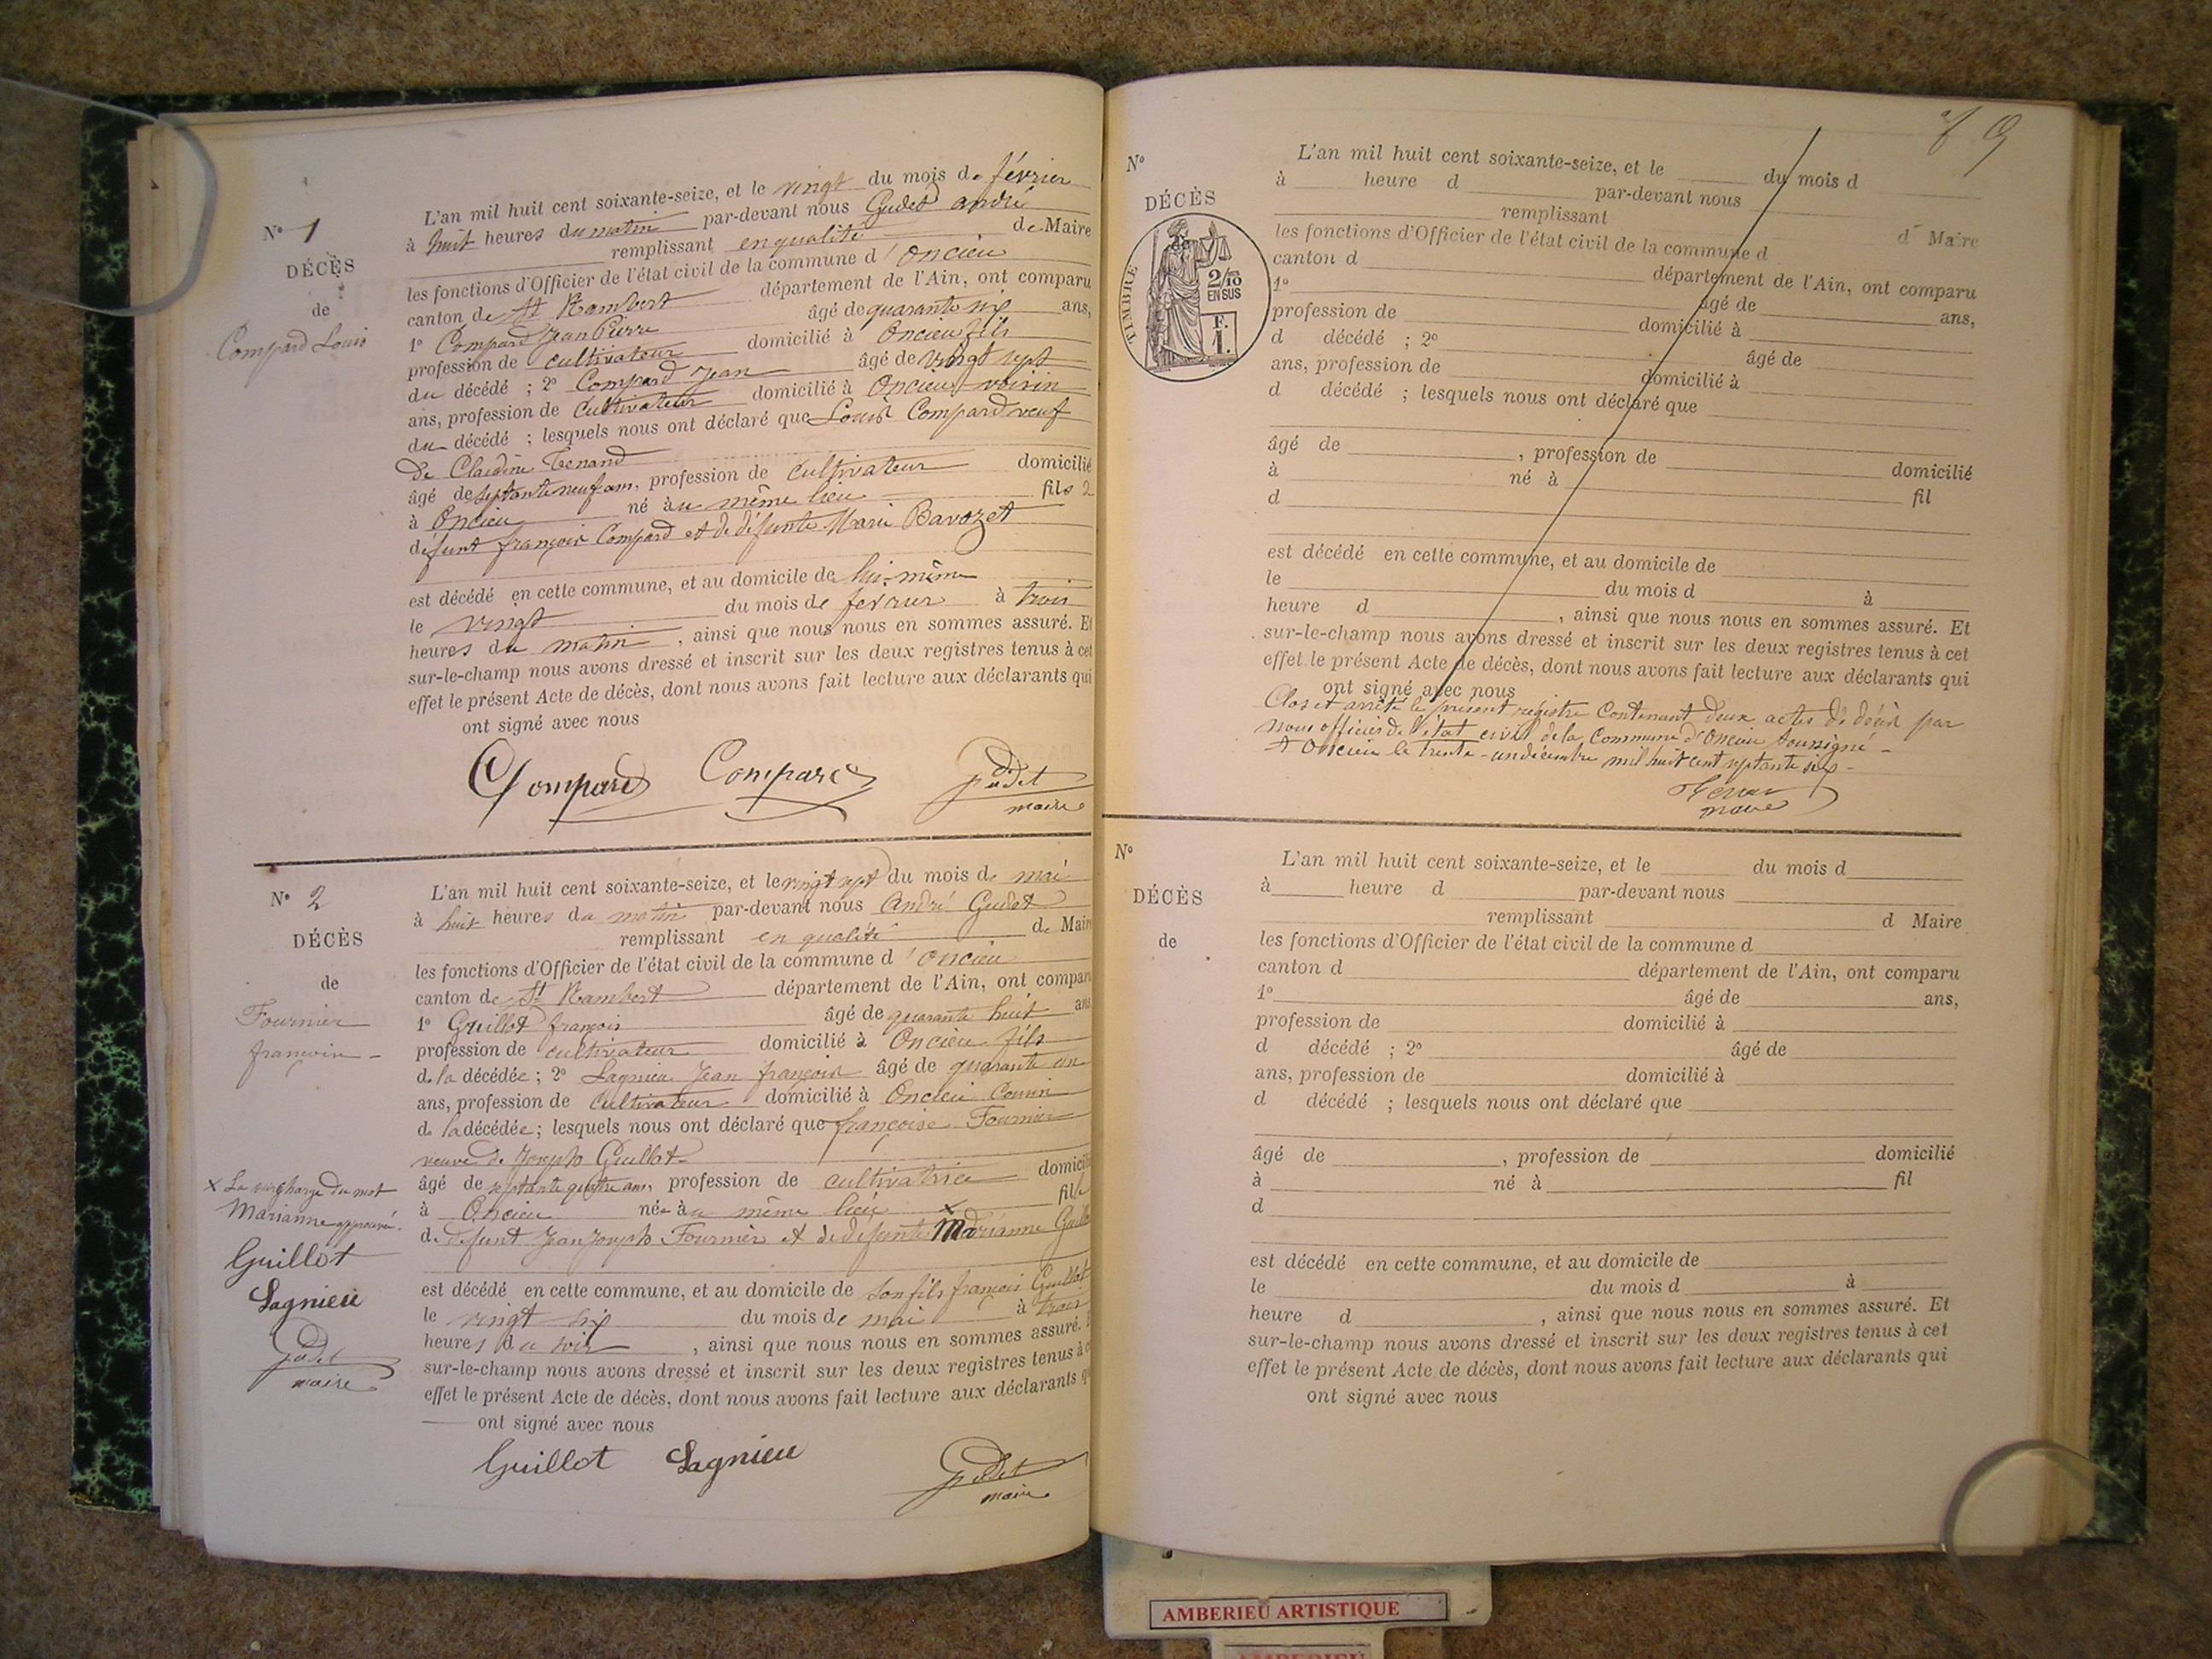 N° 1
DÉCÈS
de
Compard Louis
L'an mil huit cent soixante-seize, et le vingt du mois de février
à huit heures du matin par-devant nous Gudet andré
remplissant en qualité de Maire
les fonctions d'Officier de l'état civil de la commune d'Oncieu
canton de St Rambert département de l'Ain, ont comparu
1° Compard Jean Pierre âgé de quarante six ans,
profession de cultivateur domicilié à Oncieu fils
du décédé ; 2° Compard Jean âgé de vingt sept
ans, profession de Cultivateur domicilié à Oncieu voisin
du décédé ; lesquels nous ont déclaré que Louis Compard veuf
de Claudine Tenand
âgé de septante neuf ans, profession de cultivateur domicilié
à Oncieu né au même lieu fils de
défunt françois Compard et de défunte Marie Bavozet
est décédé en cette commune, et au domicile de lui-même
le vingt du mois de fevrier à trois
heures du matin, ainsi que nous nous en sommes assuré. Et
sur-le-champ nous avons dressé et inscrit sur les deux registres tenus à cet
effet le présent Acte de décès, dont nous avons fait lecture aux déclarants qui
ont signé avec nous
Compard Compard Gudet
maire
N° 2
DÉCÈS
de
Fournier
françoise
L'an mil huit cent soixante-seize, et le vingt sept du mois de mai
à huit heures du matin par-devant nous André Gudet
remplissant en qualité de Maire
les fonctions d'Officier de l'état civil de la commune d'Oncieu
canton de St Rambert département de l'Ain, ont comparu
1° Guillot françois âgé de quarante huit ans
profession de cultivateur domicilié à Oncieu fils
de la décédée ; 2° Lagnieu Jean françois âgé de quarante un
ans, profession de Cultivateur domicilié à Oncieu Cousin
de la décédée ; lesquels nous ont déclaré que françoise Fournier
veuve de Joseph Guillot
âgé de septante quatre ans, profession de cultivatrice domicilié
à Oncieu née au même lieu fille
de défunt Jean Joseph Fournier et de défunte x Marianne Guillot
est décédé en cette commune, et au domicile de son fils françois Guillot
le vingt six du mois de mai à trois
heures du soir, ainsi que nous nous en sommes assuré. Et
sur-le-champ nous avons dressé et inscrit sur les deux registres tenus à cet
effet le présent Acte de décès, dont nous avons fait lecture aux déclarants qui
ont signé avec nous
Guillot Lagnieu Gudet
maire
x La surcharge du mot
Marianne approuvé.
Guillot
Lagnieu
Gudet
maire
9
N°
DÉCÈS
TIMBRE
2/10
EN SUS
F.
1.
L'an mil huit cent soixante-seize, et le du mois d
à heure d par-devant nous
remplissant d Maire
les fonctions d'Officier de l'état civil de la commune d
canton d département de l'Ain, ont comparu
1° âgé de ans,
profession de domicilié à
d décédé ; 2° âgé de
ans, profession de domicilié à
d décédé ; lesquels nous ont déclaré que
âgé de , profession de domicilié
à né à fil
d
est décédé en cette commune, et au domicile de
le du mois d à
heure d , ainsi que nous nous en sommes assuré. Et
sur-le-champ nous avons dressé et inscrit sur les deux registres tenus à cet
effet le présent Acte de décès, dont nous avons fait lecture aux déclarants qui
ont signé avec nous
Clos et arrêté le présent registre Contenant deux actes de décès par
nous officier de l'état civil de la Commune d'Oncieu soussigné
A Oncieu le trente-un décembre mil huit cent septante six
maire
N°
DÉCÈS
de
L'an mil huit cent soixante-seize, et le du mois d
à heure d par-devant nous
remplissant d Maire
les fonctions d'Officier de l'état civil de la commune d
canton d département de l'Ain, ont comparu
1° âgé de ans,
profession de domicilié à
d décédé ; 2° âgé de
ans, profession de domicilié à
d décédé ; lesquels nous ont déclaré que
âgé de , profession de domicilié
à né à fil
d
est décédé en cette commune, et au domicile de
le du mois d à
heure d , ainsi que nous nous en sommes assuré. Et
sur-le-champ nous avons dressé et inscrit sur les deux registres tenus à cet
effet le présent Acte de décès, dont nous avons fait lecture aux déclarants qui
ont signé avec nous
AMBERIEU ARTISTIQUE
AMBERIEU